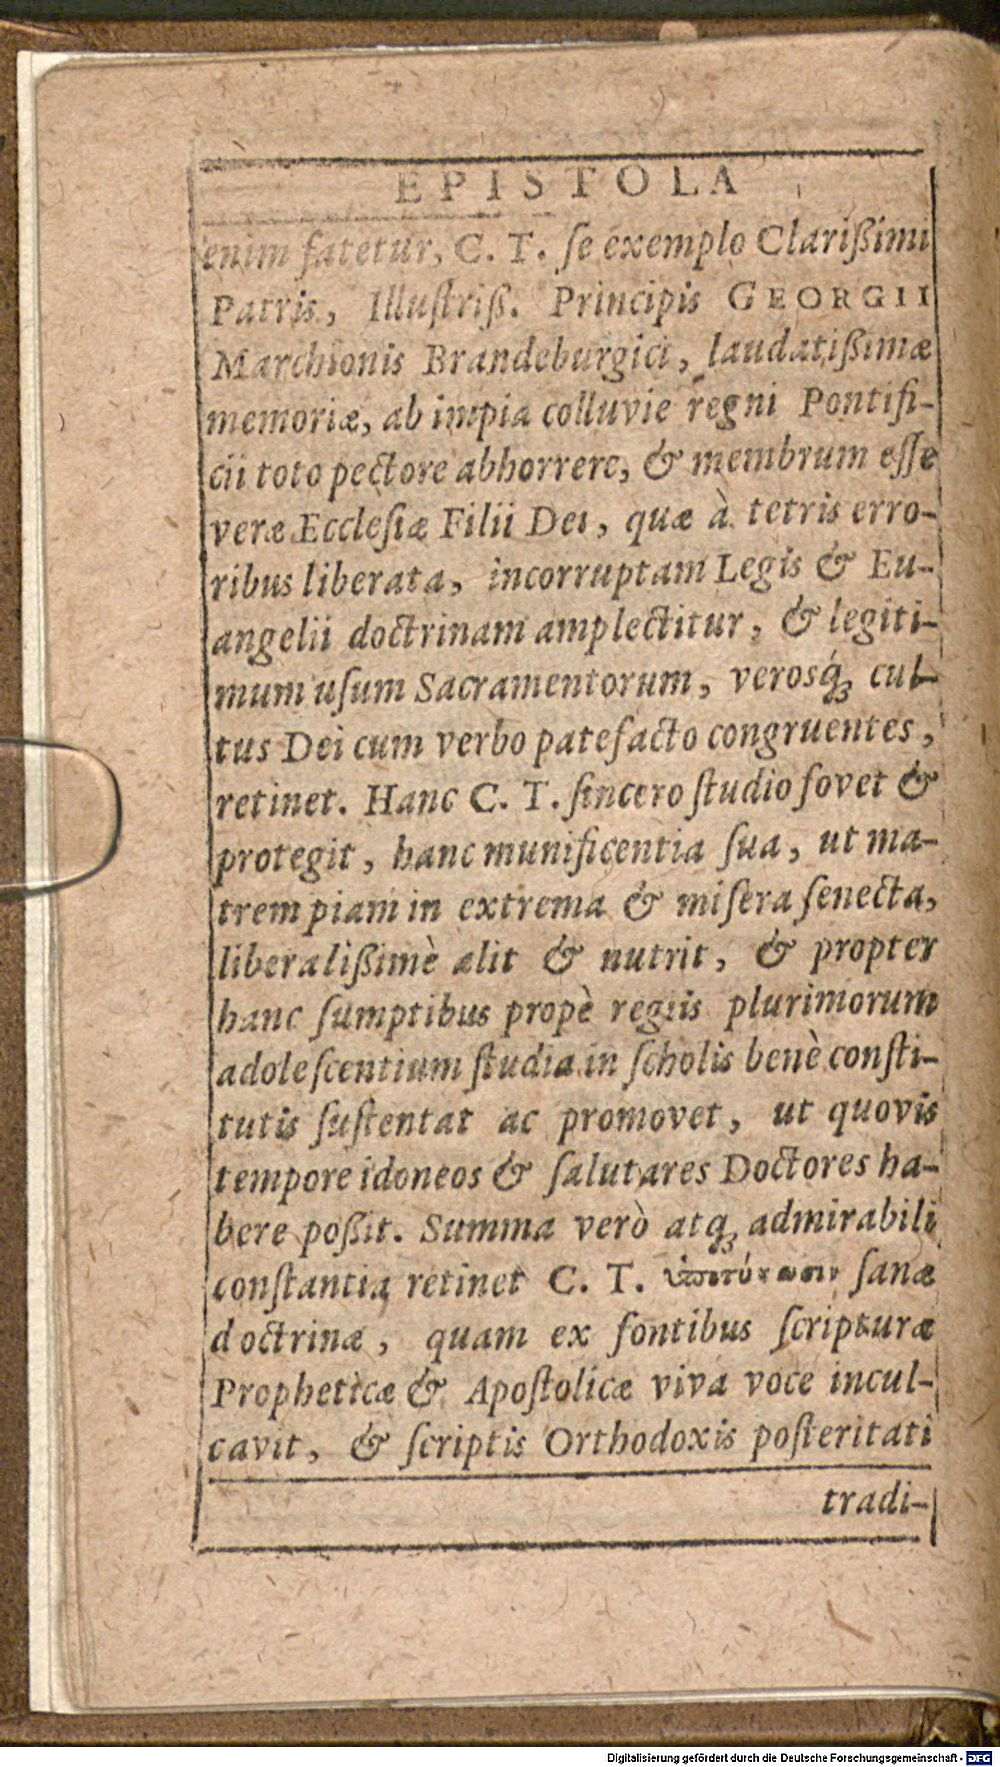 EPISTOLA
enim fatetur, C. T. ſe exemplo Clarißimi
Patris, Illuſtriß. Principis GEORGII
Marchionis Brandeburgici, laudatißimæ
memoriæ, ab impia colluvie regni Pontifi-
cii toto pectore abhorrere, & membrum eſſe
veræ Eccleſiæ Filii Dei, quæ à tetris erro-
ribus liberata, incorruptam Legis & Eu-
angelii doctrinam amplectitur, & legiti-
mum uſum Sacramentorum, verosq́ꝫ cul-
tus Dei cum verbo patefacto congruentes,
retinet. Hanc C. T. ſincero ſtudio fovet &
protegit, hanc munificentia ſua, ut ma-
trem piam in extrema & miſera ſenecta,
liberalißimè alit & nutrit, & propter
hanc ſumptibus propè regiis plurimorum
adoleſcentium ſtudia in ſcholis benè conſti-
tutis ſuſtentat ac promovet, ut quovis
tempore idoneos & ſalutares Doctores ha-
bere poßit. Summa verò atqꝫ admirabili
conſtantia retinet C. T. ὑποτύπωσιν ſanæ
doctrinæ, quam ex fontibus ſcripturæ
Propheticæ & Apoſtolicæ viva voce incul-
cavit, & ſcriptis Orthodoxis poſteritati
tradi-
Digitalisierung gefördert durch die Deutsche Forschungsgemeinschaft - DFG